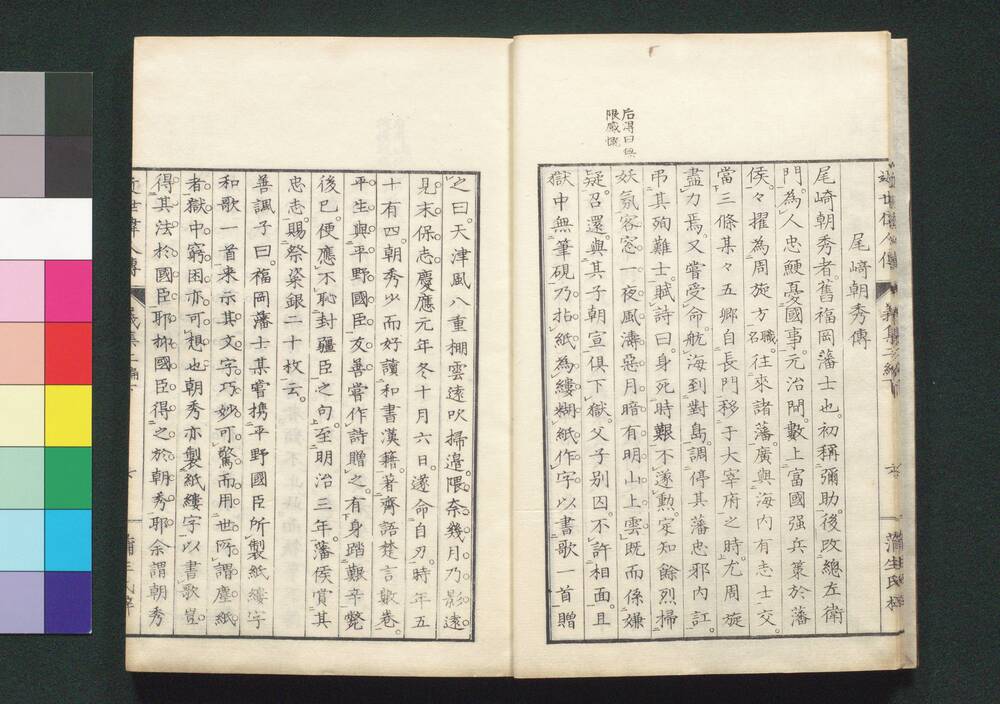 后得曰係
限感慨
近世偉人傳
義集二編下
蒲生氏梓
尾﨑朝秀傳
尾崎朝秀者。舊福岡藩士也。初稱彌助。後改總左衛
門。為人忠鯁憂國事。元治間。數上富國强兵策於藩
侯。々擢為周旋方職名。往來諸藩。廣與海内有志士交。
當三條某々五卿自長門移于大宰府之時。尤周旋
盡力焉。又嘗受命。航海到對島。調停其藩忠邪内訌。
弔其殉難士。賦詩曰。身死時艱不遂勲。定知餘烈掃
妖氛。客窓一夜風濤惡。月暗有明山上雲。既而係嫌
疑。召還。與其子朝宣俱下獄。父子別囚。不許相面。且
獄中無筆硯。乃拈紙為縷。糊紙作字。以書歌一首贈
之曰。天津風八重棚雲遠吹掃邉隈奈幾月乃影遠
見末保志。慶應元年冬十月六日。遂命自刃。時年五
十有四。朝秀少而好讀和書漢籍。著齊語楚言數卷。
平生與平野國臣友善。嘗作詩贈之。有身踏艱辛斃
後已。便應不恥封疆臣之句。至明治三年。藩侯賞其
忠志。賜祭粢銀二十枚云。
善諷子曰。福岡藩士某嘗携平野國臣所製紙縷字
和歌一首来示。其文字巧妙可驚。而用世所謂塵紙
者。獄中窮困亦可想也。朝秀亦製紙縷字。以書歌。豈
得其法於國臣耶。抑國臣得之於朝秀耶。余謂朝秀
近世偉人傳
義集二編下
蒲生氏梓